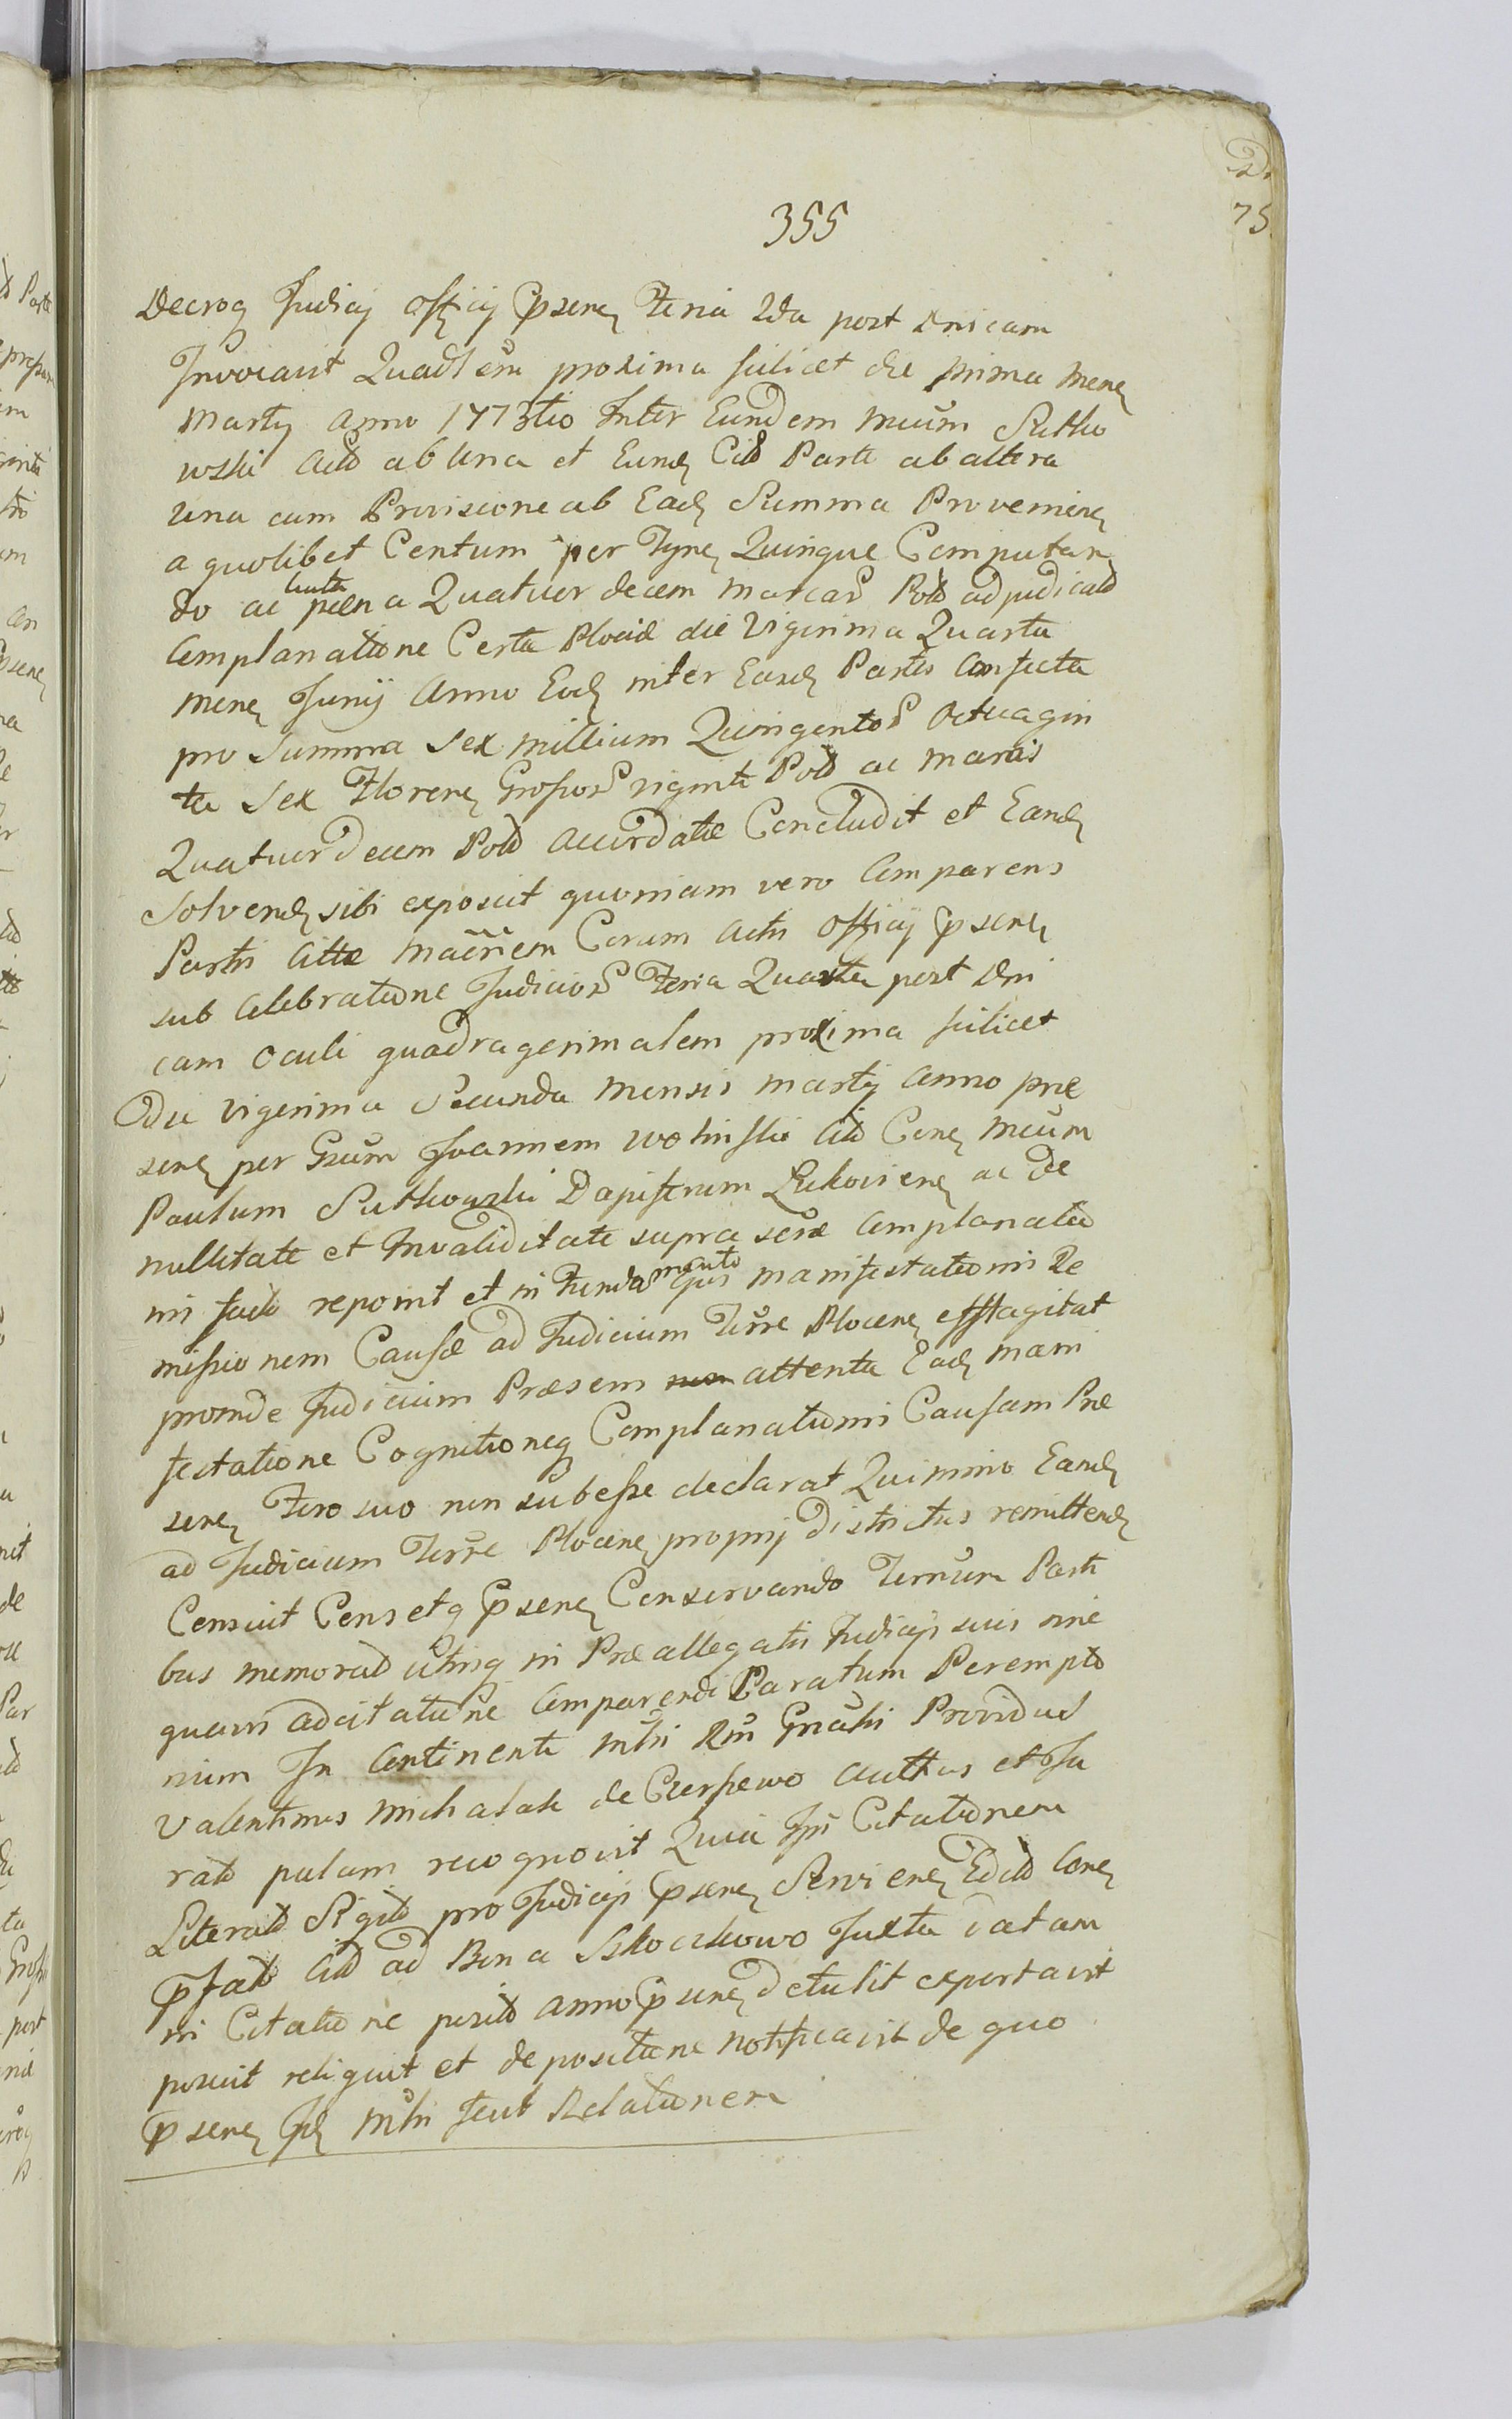 355
75
Decroq Judicy officy Ppsenꝫ Feria 2da post Dnicam
Invocavit Quadlem proxima scilicet die prima menꝫ
Marty Anno 1773tio Inter Eundem mcum Sutko
wski Actō ab una et Eundꝫ Citō Parte ab altera
una cum Provisione ab Eadꝫ Summa Provenienꝫ
a quolibet Centum per Fynꝫ Quinque Computan
do ac luita pæna Quatuor decem marcar Polō adjudicatō
Complanatione Certa Plociæ die Vigesima Quarta
menꝫ Junij Anno Eodꝫ inter Easdꝫ Partes Confecta
pro Summa Sex millium Quingentor Octuagin
ta Sex Florenꝫ Grossor viginti Polō ac marcis
Quatuordecem Polō accordatæ Concludit et Eandꝫ
Solvendꝫ sibi exposcit quoniam vero Comparens
Partis Cittæ Macnem Coram Actis officy Ppsenꝫ
sub Celebratione Judicior Feria Quarta post Dni
cam Oculi quadragesimalem proxima scilicet
die vigesima Secunda Mensis Marty Anno præ
senꝫ per Gsum Joannem Wolinski Citō Conꝫ Mcum
Paulum Sutkowski Dapiferum Lukovienꝫ ac de
nullitate et Invaliditate supra scræ Complanatio
nis factō reponit et in Fundamento Ejus manifestationis Re
missionem Causæ ad Judicium Terre Plocenꝫ efflagitat
proinde Judicium Præsens attenta Eadꝫ mani
festatione Cognitioneq Complanationis Causam Præ
senꝫ Foro suo non subesse declarat Quinimo Eandꝫ
ad Judicium Terre Plocenꝫ proprij districtus remittendꝫ
Censuit Censetq Ppsenꝫ Conservando Ternum Parti
bus memoratō utrisq in Præallegatis Judicijs suis sine
quavis adcitatione Comparendi Paratum Perempto
rium In Continenti mtri Rm Gnalis Providus
Valentinus Michalak de Cierszewo Autthus et Ju
ratō palam recognovit Quia Ipse Citationem
Literatō Sigilō pro Judicijs Ppsenꝫ Servienꝫ Editō Conꝫ
Ppfatō Citō ad Bona Szkoczkowo Juxta datam
in Citatione positō anno Ppsenꝫ detulit exportavit
posuit reliquit et de positione notificavit de quo
Ppsenꝫ Jdꝫ Mtri fecit Relationem